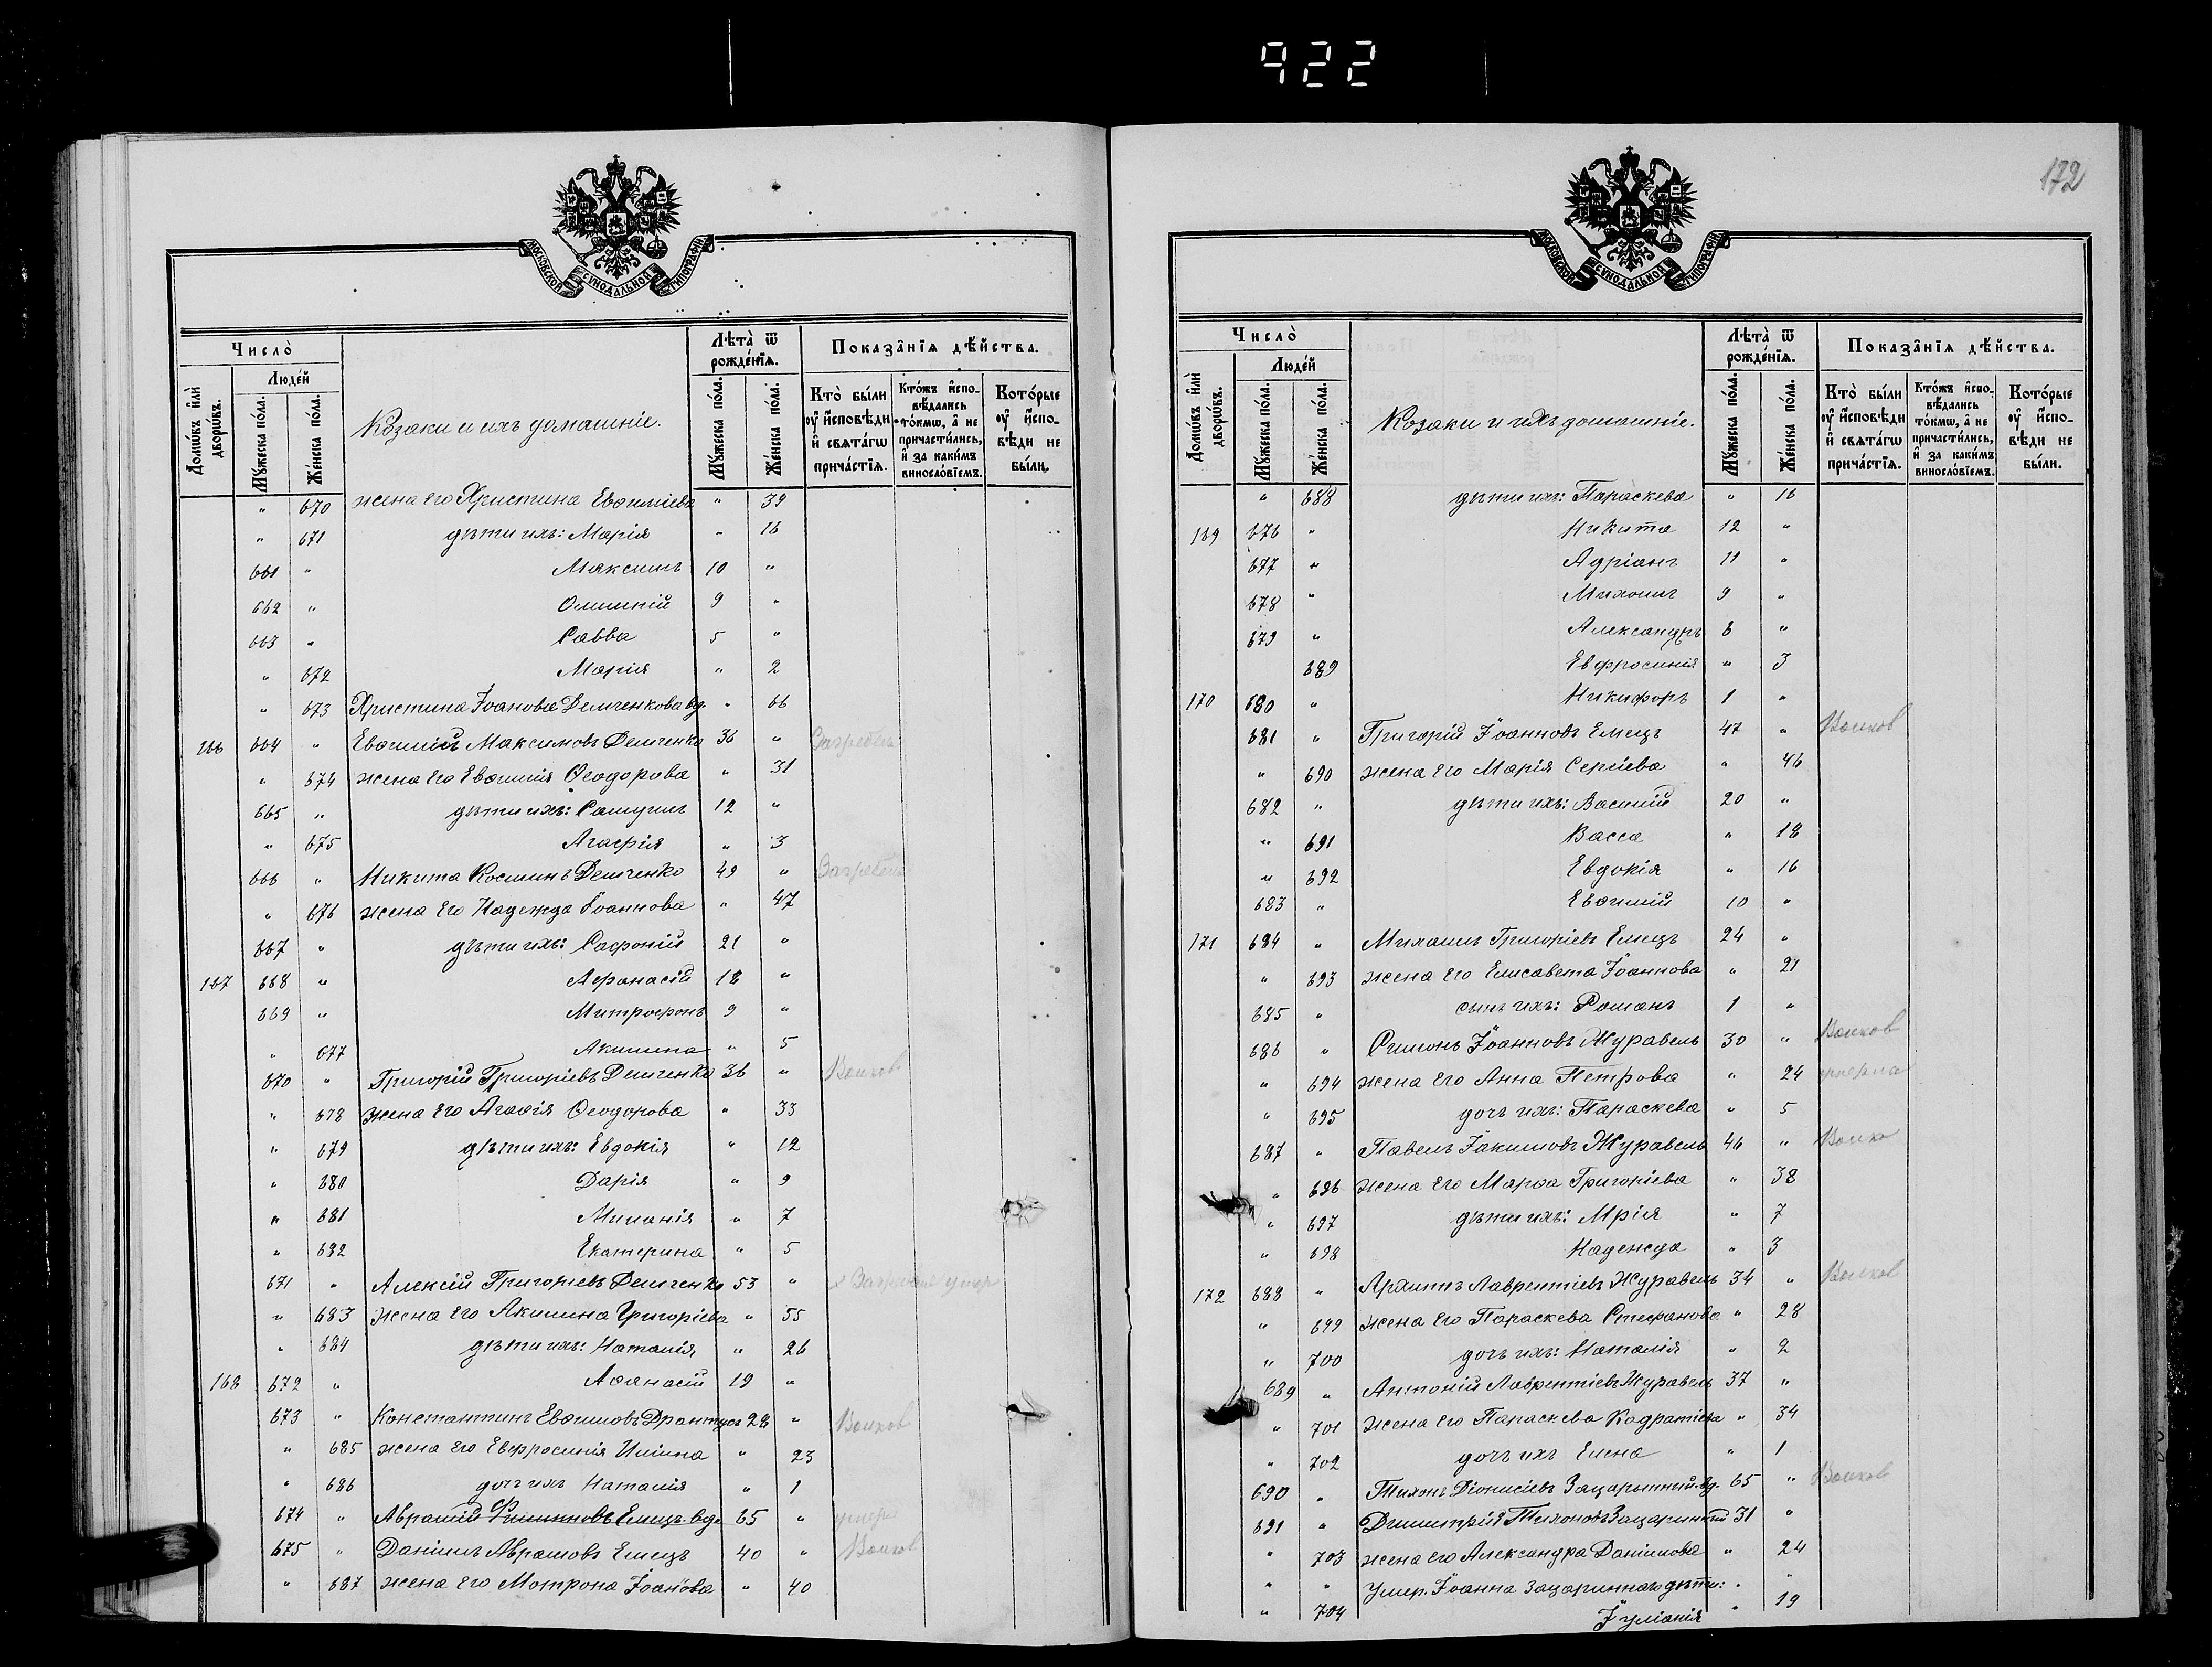 922
МОСКОВСКОЙ СѴНОДАЛЬНОЙ ТИПОГРАФІИ
Число̀
Людéй
Домѡ́въ и҆лѝ дворѡ́въ.
Мꙋ́жеска по́ла.
Же́нска по́ла.
Козаки и ихъ домашніе.
Лѣта̀ ѿ рожде́нїѧ.
Мꙋ́жеска по́ла.
Же́нска по́ла.
Показа̑нїѧ дѣ́йства.
Кто̀ бы́ли ᲂу҆ и҆́сповѣди и҆ свѧта́гѡ прича́стїѧ.
Кто́жъ и҆спо-вѣ́дались то́кмѡ, а҆ не причасти́лись, и҆ за каки́мъ виносло́вїемъ.
Кото́рые ᲂу҆ и҆́спо-вѣди не бы́ли.
" 670 жена его Христина Евѳиміева " 39
" 671 дѣти ихъ: Марія " 16
661 " Максимъ 10 "
662 " 9 "
663 " Савва 5 "
" 672 Марія " 2
" 673 Христина Іоанова Демченкова вд. " 66
166 664 " Евѳимій Максимовъ Демченко 36 " Загребла
" 674 жена его Евѳимія Ѳеодорова " 31
665 " дѣти ихъ: Самуилъ 12 "
" 675 Агафія " 3
666 " Никита Космин Демченко 49 " Загребла
" 676 жена его Надежда Іоаннова " 47
667 " дѣти ихъ: Сафоній 21 "
167 668 " Афанасій 18 "
669 " Митрофонъ 9 "
" 677 Акилина " 5
670 " Григорій Григоріевъ Демченко 36 " Волков
" 678 жена его Агаѳія Ѳеодорова " 33
" 679 дѣти ихъ: Евдокія " 12
" 680 Дарія " 9
" 681 Миланія " 7
" 682 Екатерина " 5
671 " Алексій Григоріевъ Демченко 53 " умер
" 683 жена его Акилина Григоріева " 55
" 684 дѣти ихъ: Наталія, " 26
168 672 " Аѳанасій 19 "
673 " Константинъ Евѳимовъ 28 " Волков
" 685 жена его Евфросинія Иліина " 23
" 686 дочь ихъ Наталія " 1
674 " Аврамій Емецъ вд. 65 " умер
675 " Даніилъ Аврамовъ Емецъ 40 " Волков
" 687 жена его Мотрона Іоанова " 40
172
МОСКОВСКОЙ СѴНОДАЛЬНОЙ ТИПОГРАФІИ
Число̀
Людéй
Домѡ́въ и҆лѝ дворѡ́въ.
Мꙋ́жеска по́ла.
Же́нска по́ла.
Козаки и ихъ домашніе.
Лѣта̀ ѿ рожде́нїѧ.
Мꙋ́жеска по́ла.
Же́нска по́ла.
Показа̑нїѧ дѣ́йства.
Кто̀ бы́ли ᲂу҆ и҆́сповѣди и҆ свѧта́гѡ прича́стїѧ.
Кто́жъ и҆спо-вѣ́дались то́кмѡ, а҆ не причасти́лись, и҆ за каки́мъ виносло́вїемъ.
Кото́рые ᲂу҆ и҆́спо-вѣди не бы́ли.
" 688 дѣти ихъ: Параскева " 16
169 676 " Никита 12 "
677 " Адріанъ 11 "
678 " Михаилъ 9 "
679 " Александръ 8 "
689 Евфросинія " 3
170 680 " Никифоръ 1 "
681 " Григорій Іоанновъ Емецъ 47 " Волков
" 690 жена его Марія Сергіева " 46
682 " дѣти ихъ: Василій 20 "
" 691 Васса " 18
" 692 Евдокія " 16
683 " Евѳимій 10 "
171 684 " Михаилъ Григоріевъ Емецъ 24 "
" 693 жена его Елисавета Іоаннова " 21
685 " сынъ ихъ: Романъ 1 "
686 " Симонъ Іоанновъ Журавель 30 " Волков
" 694 жена его Анна Петрова " 24 умерла
" 695 дочь ихъ: Параскева " 5
687 " Павелъ Іакимовъ Журавель 46 " Волко
" 696 жена его Марѳа Григоріева " 38
" 697 дѣти ихъ: Мрія " 7
" 698 Надежда " 3
172 688 " Архиппъ Лаврентіевъ Журавель 34 " Волков
" 699 жена его Параскева Стефанова " 28
" 700 дочь ихъ: Наталія " 2
689 " Антоній Лаврентіевъ Журавель 37 "
" 701 жена его Параскева Кадратіева " 34
" 702 дочь ихъ Елена " 1
690 " Тихонъ Діонисіевъ Зацаринный вд. 65 " Волков
691 " Димитрій Тихоновъ Зацаринный 31 "
" 703 жена его Александра Даніилова " 24
" " Умер. Іоанна Зацариннаго дѣти: " "
" 704 Іуліанія " 19